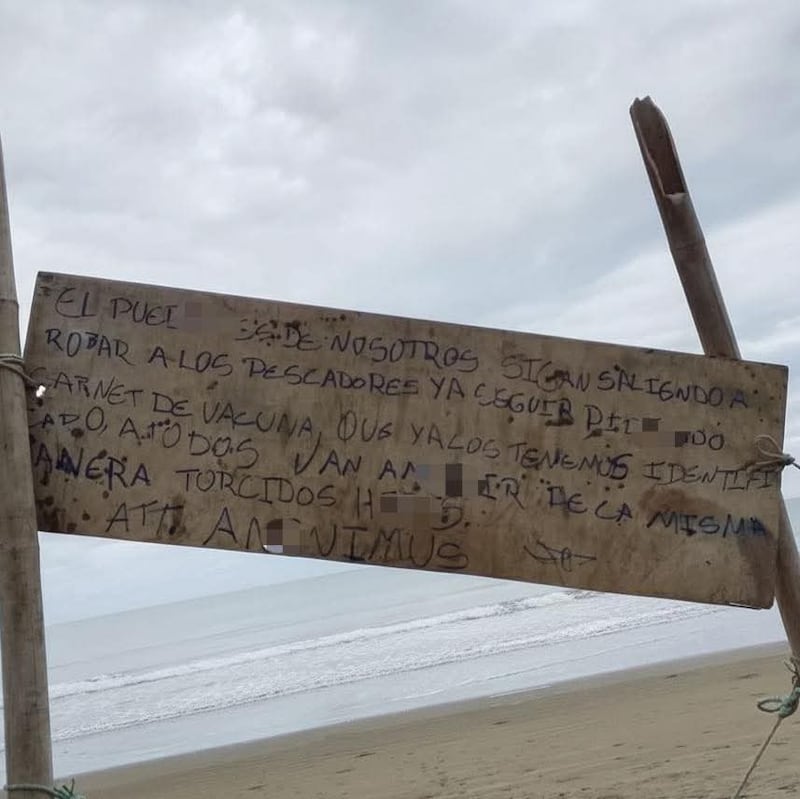 EL ES DE NOSOTROS SIGAN SALIENDO A
ROBAR A LOS PESCADORES YA SEGUIR
CARNET DE VACUNA, QUE YA LOS TENEMOS IDENTIFI
CADO, A TODOS VAN A DE LA MISMA
MANERA TORCIDOS
ATT.